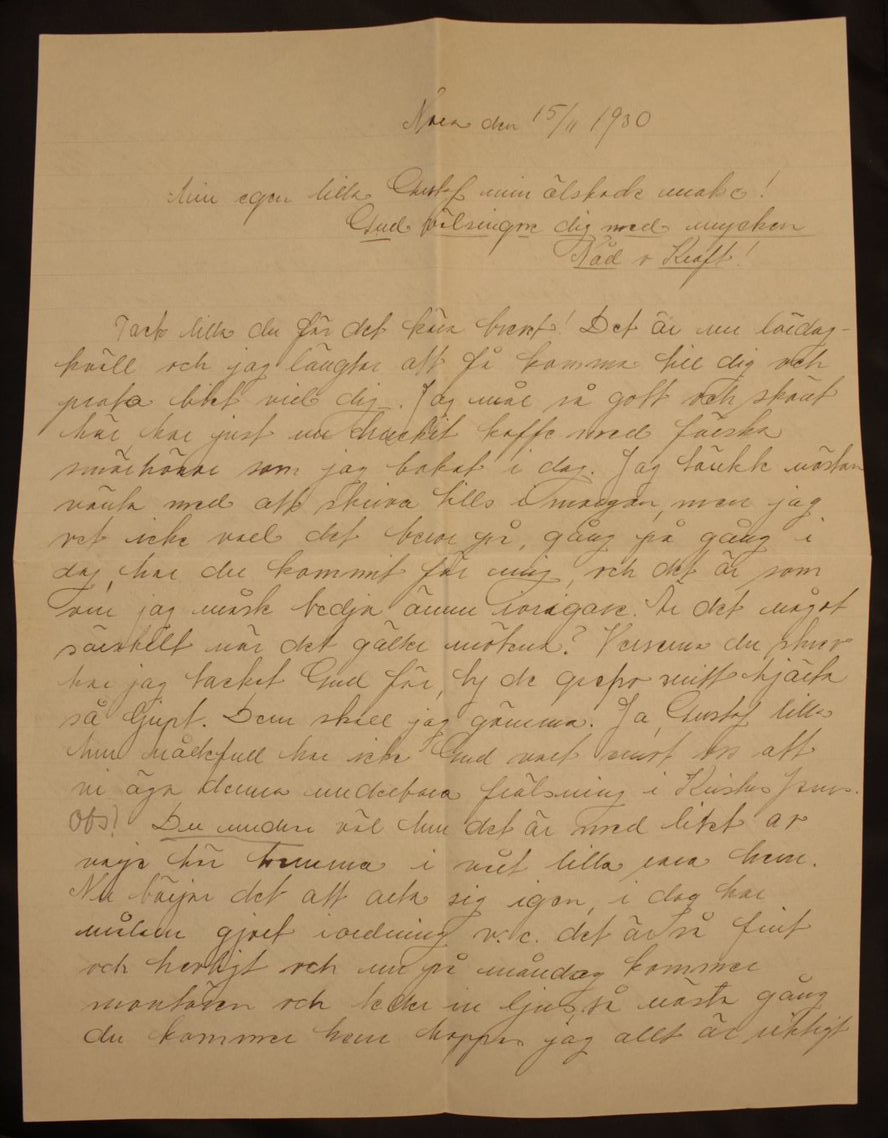 Nora den 15/11 1930
Min egen lilla Gustaf min älskade make!
Gud välsingne dig med mycken
Nåd o Kraft!
Tack lilla du för det kära brevet! Det är nu lördag-
kväll och jag längtar att få komma till dig och
prata litet vid dig. Jag mår så gott och skönt
här, har just nu druckit kaffe med färska
smörkakor som jag bakat i dag. Jag tänkte nästan
vänta med att skriva tills i morgon, men jag
vet icke vad det beror på, gång på gång i
dag, har du kommit för mig, och det är som
om jag måste bedja ännu ivrigare. Är det något
särskilt när det gäller mötena? Verserna du skrev
har jag tackat Gud för, ty de grepo mitt hjärta
så djupt. Dem skall jag gömma. Ja, Gustaf lilla
hur nådefull har icke Gud varit mot oss att
vi äga denna underbara frälsning i Kristus Jesus.
Obs! Du undrar väl hur det är med litet av
varje här hemma i vårt lilla rara hem.
Nu börjar det att arta sig igen, i dag har
målarn gjort i ordning v.c. det är så fint
och härligt och nu på måndag kommer
montören och leder in ljus, så nästa gång
du kommer hem hoppas jag allt är riktigt